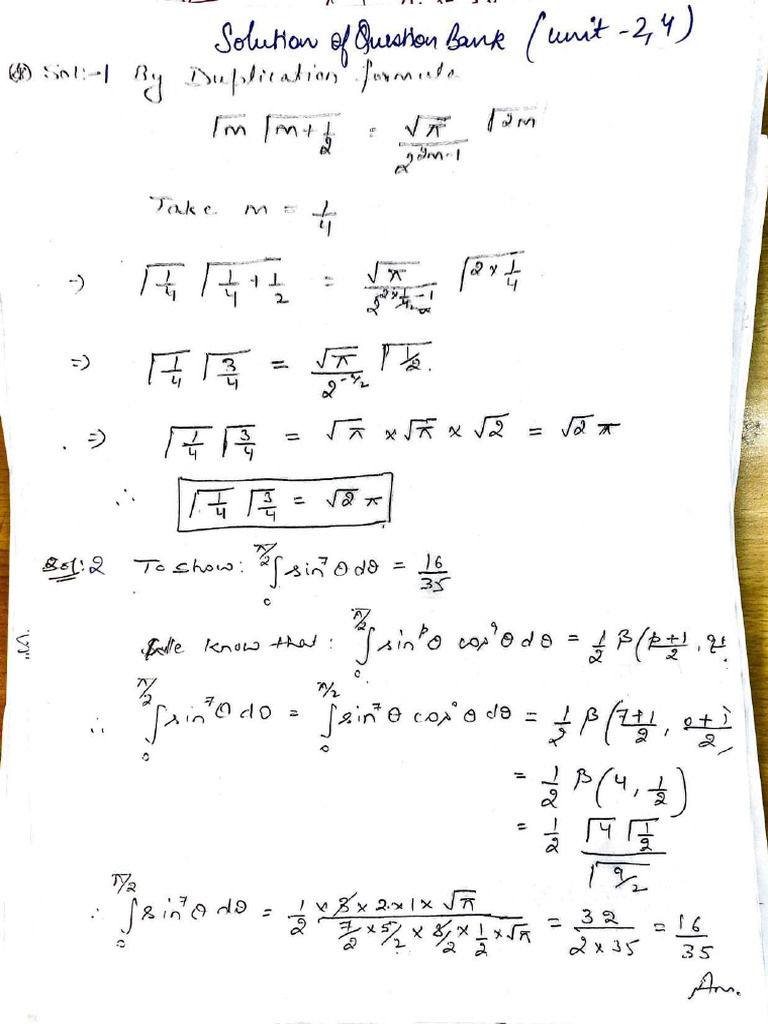 Solution of Question Bank (unit - 2, 4)
Sol:-1 By Duplication formula
Γm Γm+1/2 = √π/2^(2m-1) Γ2m
Take m = 1/4
⇒ Γ1/4 Γ1/4+1/2 = √π/2^(2×1/4-1) Γ2×1/4
⇒ Γ1/4 Γ3/4 = √π/2^(-1/2) Γ1/2.
⇒ Γ1/4 Γ3/4 = √π × √π × √2 = √2 π
∴ Γ1/4 Γ3/4 = √2 π
Sol:2 To show: ∫₀^(π/2) sin⁷θ dθ = 16/35
We know that: ∫₀^(π/2) sin^p θ cos^q θ dθ = 1/2 β(p+1/2, q+
∴ ∫₀^(π/2) sin⁷θ dθ = ∫₀^(π/2) sin⁷θ cos⁰θ dθ = 1/2 β(7+1/2, 0+1/2,
= 1/2 β(4, 1/2)
= 1/2 Γ4 Γ1/2 / Γ9/2
∴ ∫₀^(π/2) sin⁷θ dθ = 1/2 × 3×2×1×√π / 7/2 × 5/2 × 3/2 × 1/2 × √π = 32/2×35 = 16/35
Ans.